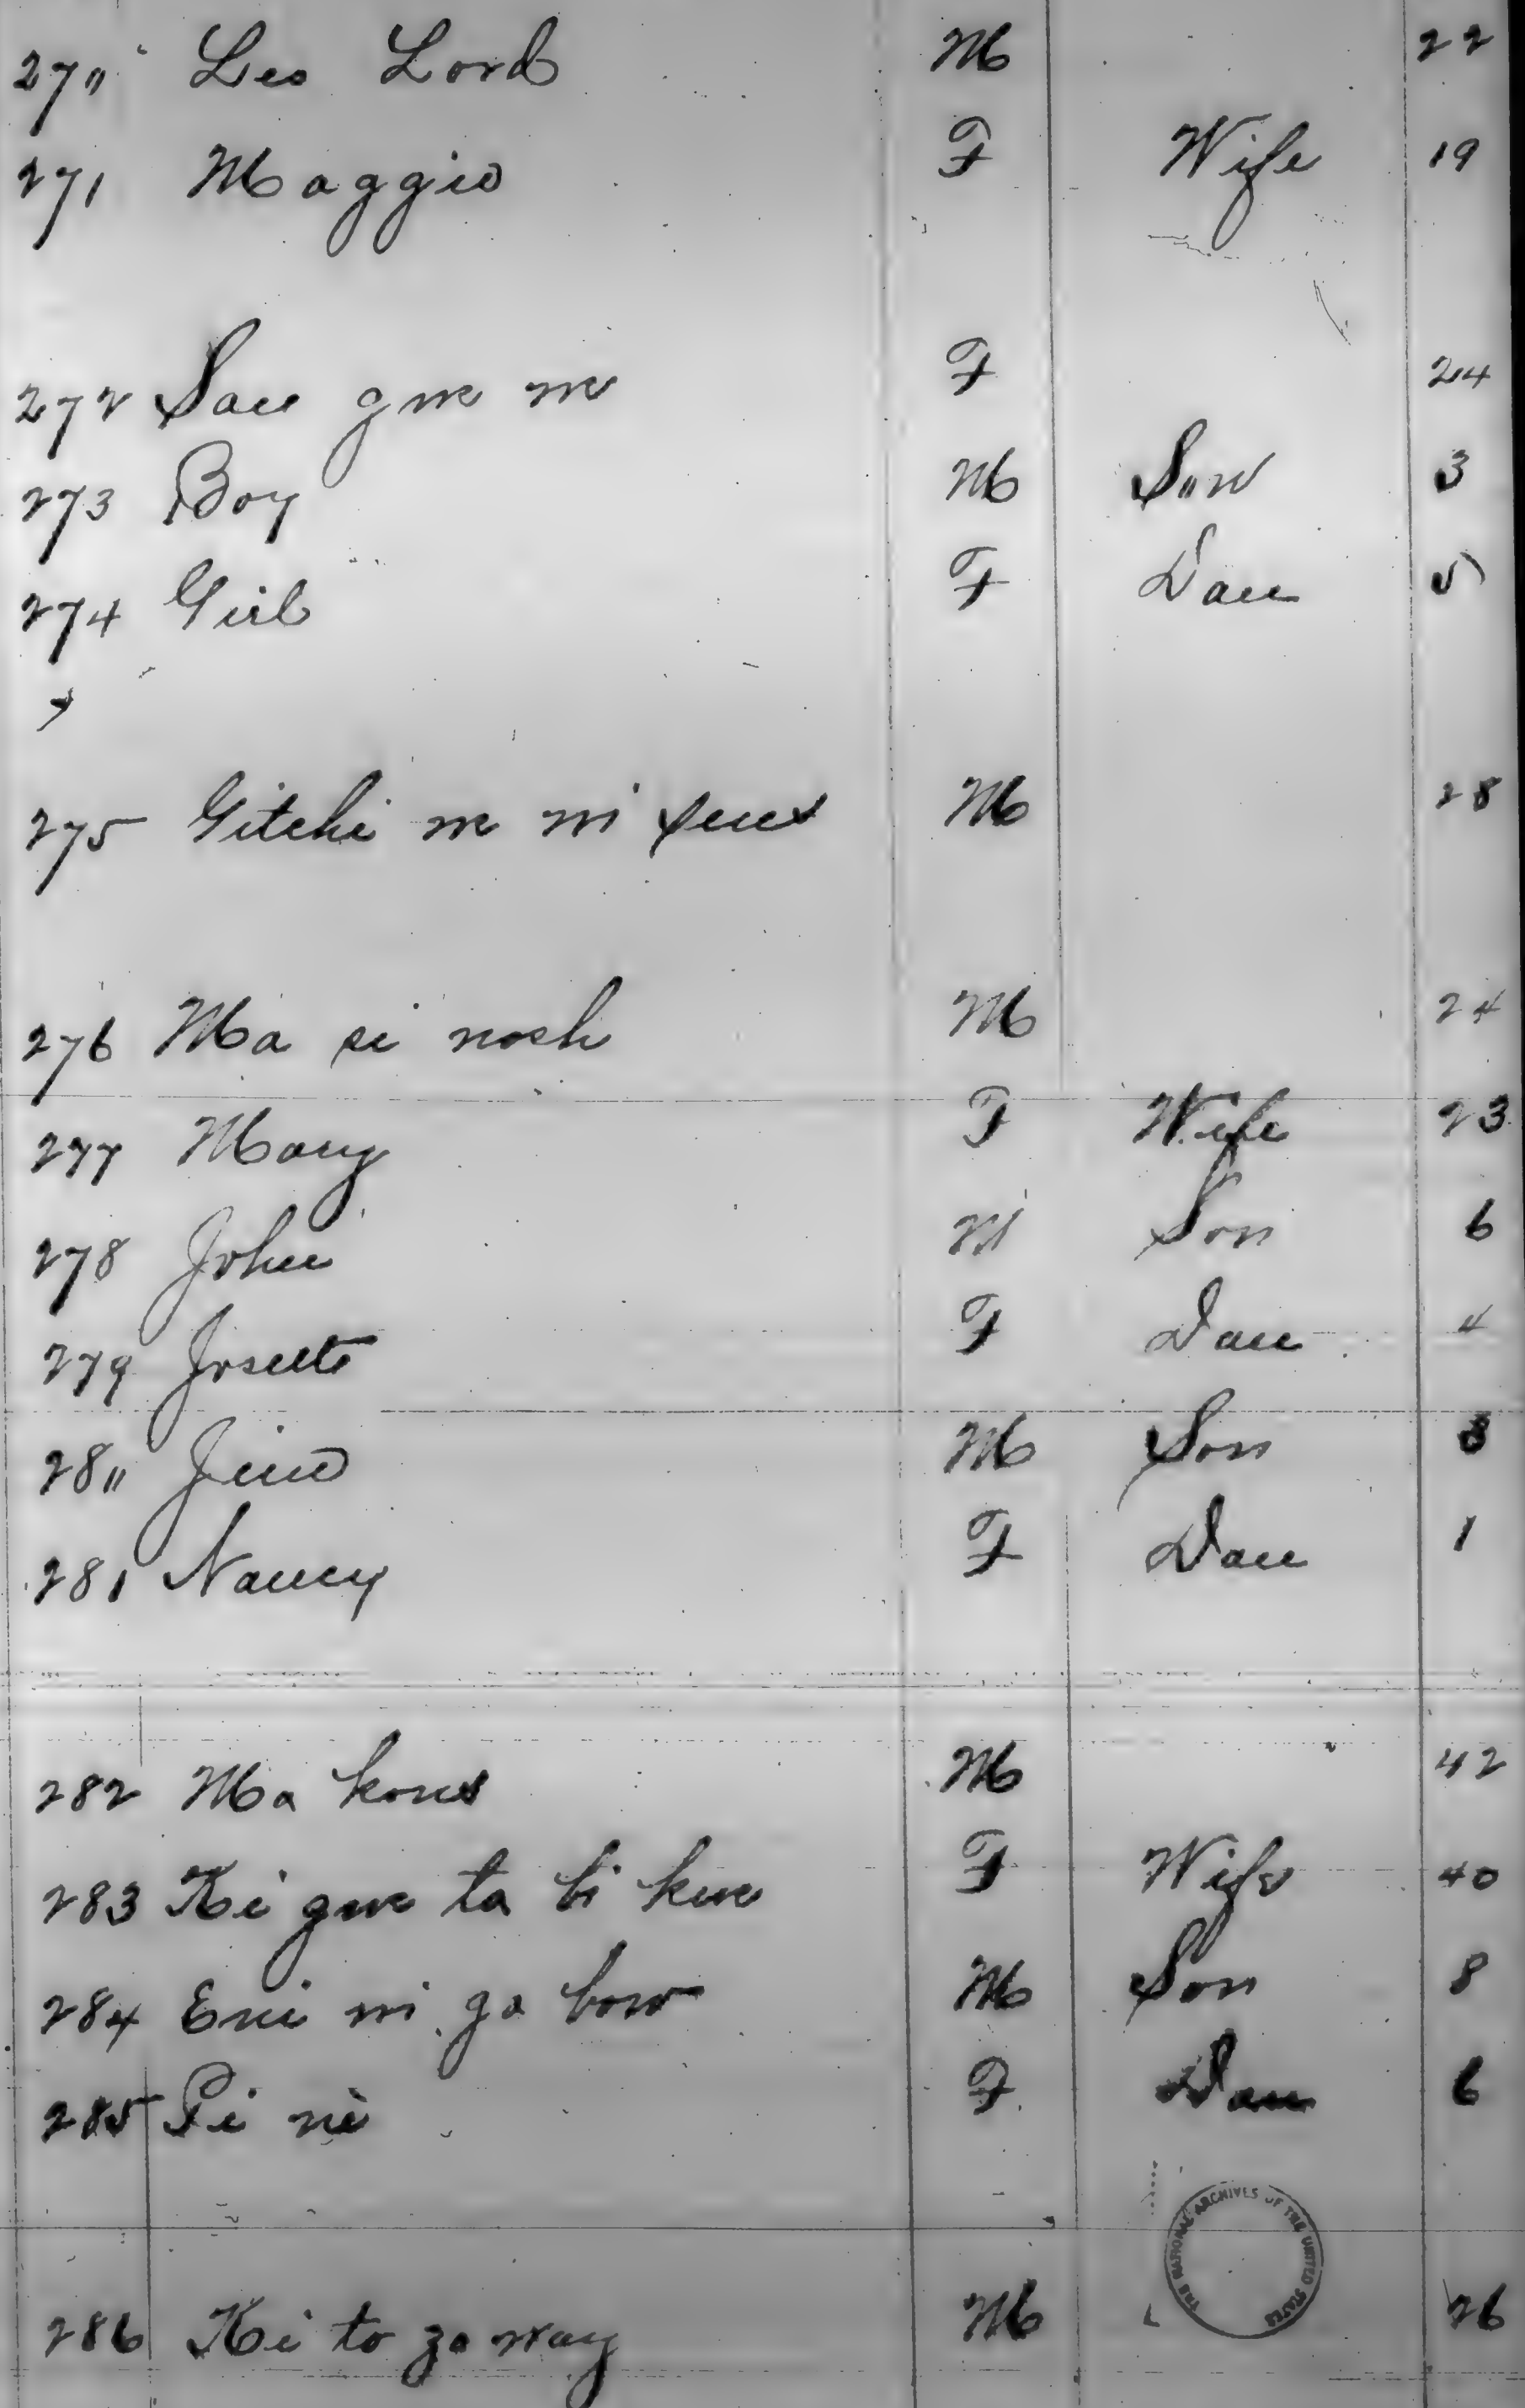 27" Leo Lord M 22
271 Maggie F Wife 19
272 Sau gwe we F 24
273 Boy M Son 3
274 Girl F Dau 5
275 Gitchi we mi seus M 28
276 Ma si nosh M 24
277 Mary F Wife 23
278 John M Son 6
279 Josette F Dau 4
28" Jim M Son 3
281 Nancy F Dau 1
282 Ma kons M 42
283 Ki gwe ta bi kwe F Wife 40
284 Eni wi ga bow M Son 8
285 Pi nè F Dau 6
THE NATIONAL ARCHIVES OF THE UNITED STATES
286 Ki to ga way M 26